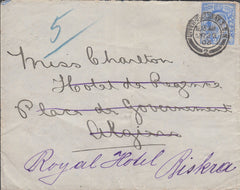 5
Miss Charlton
Hotel de Regence
Place de Government
Algiers
Royal Hotel Biskra